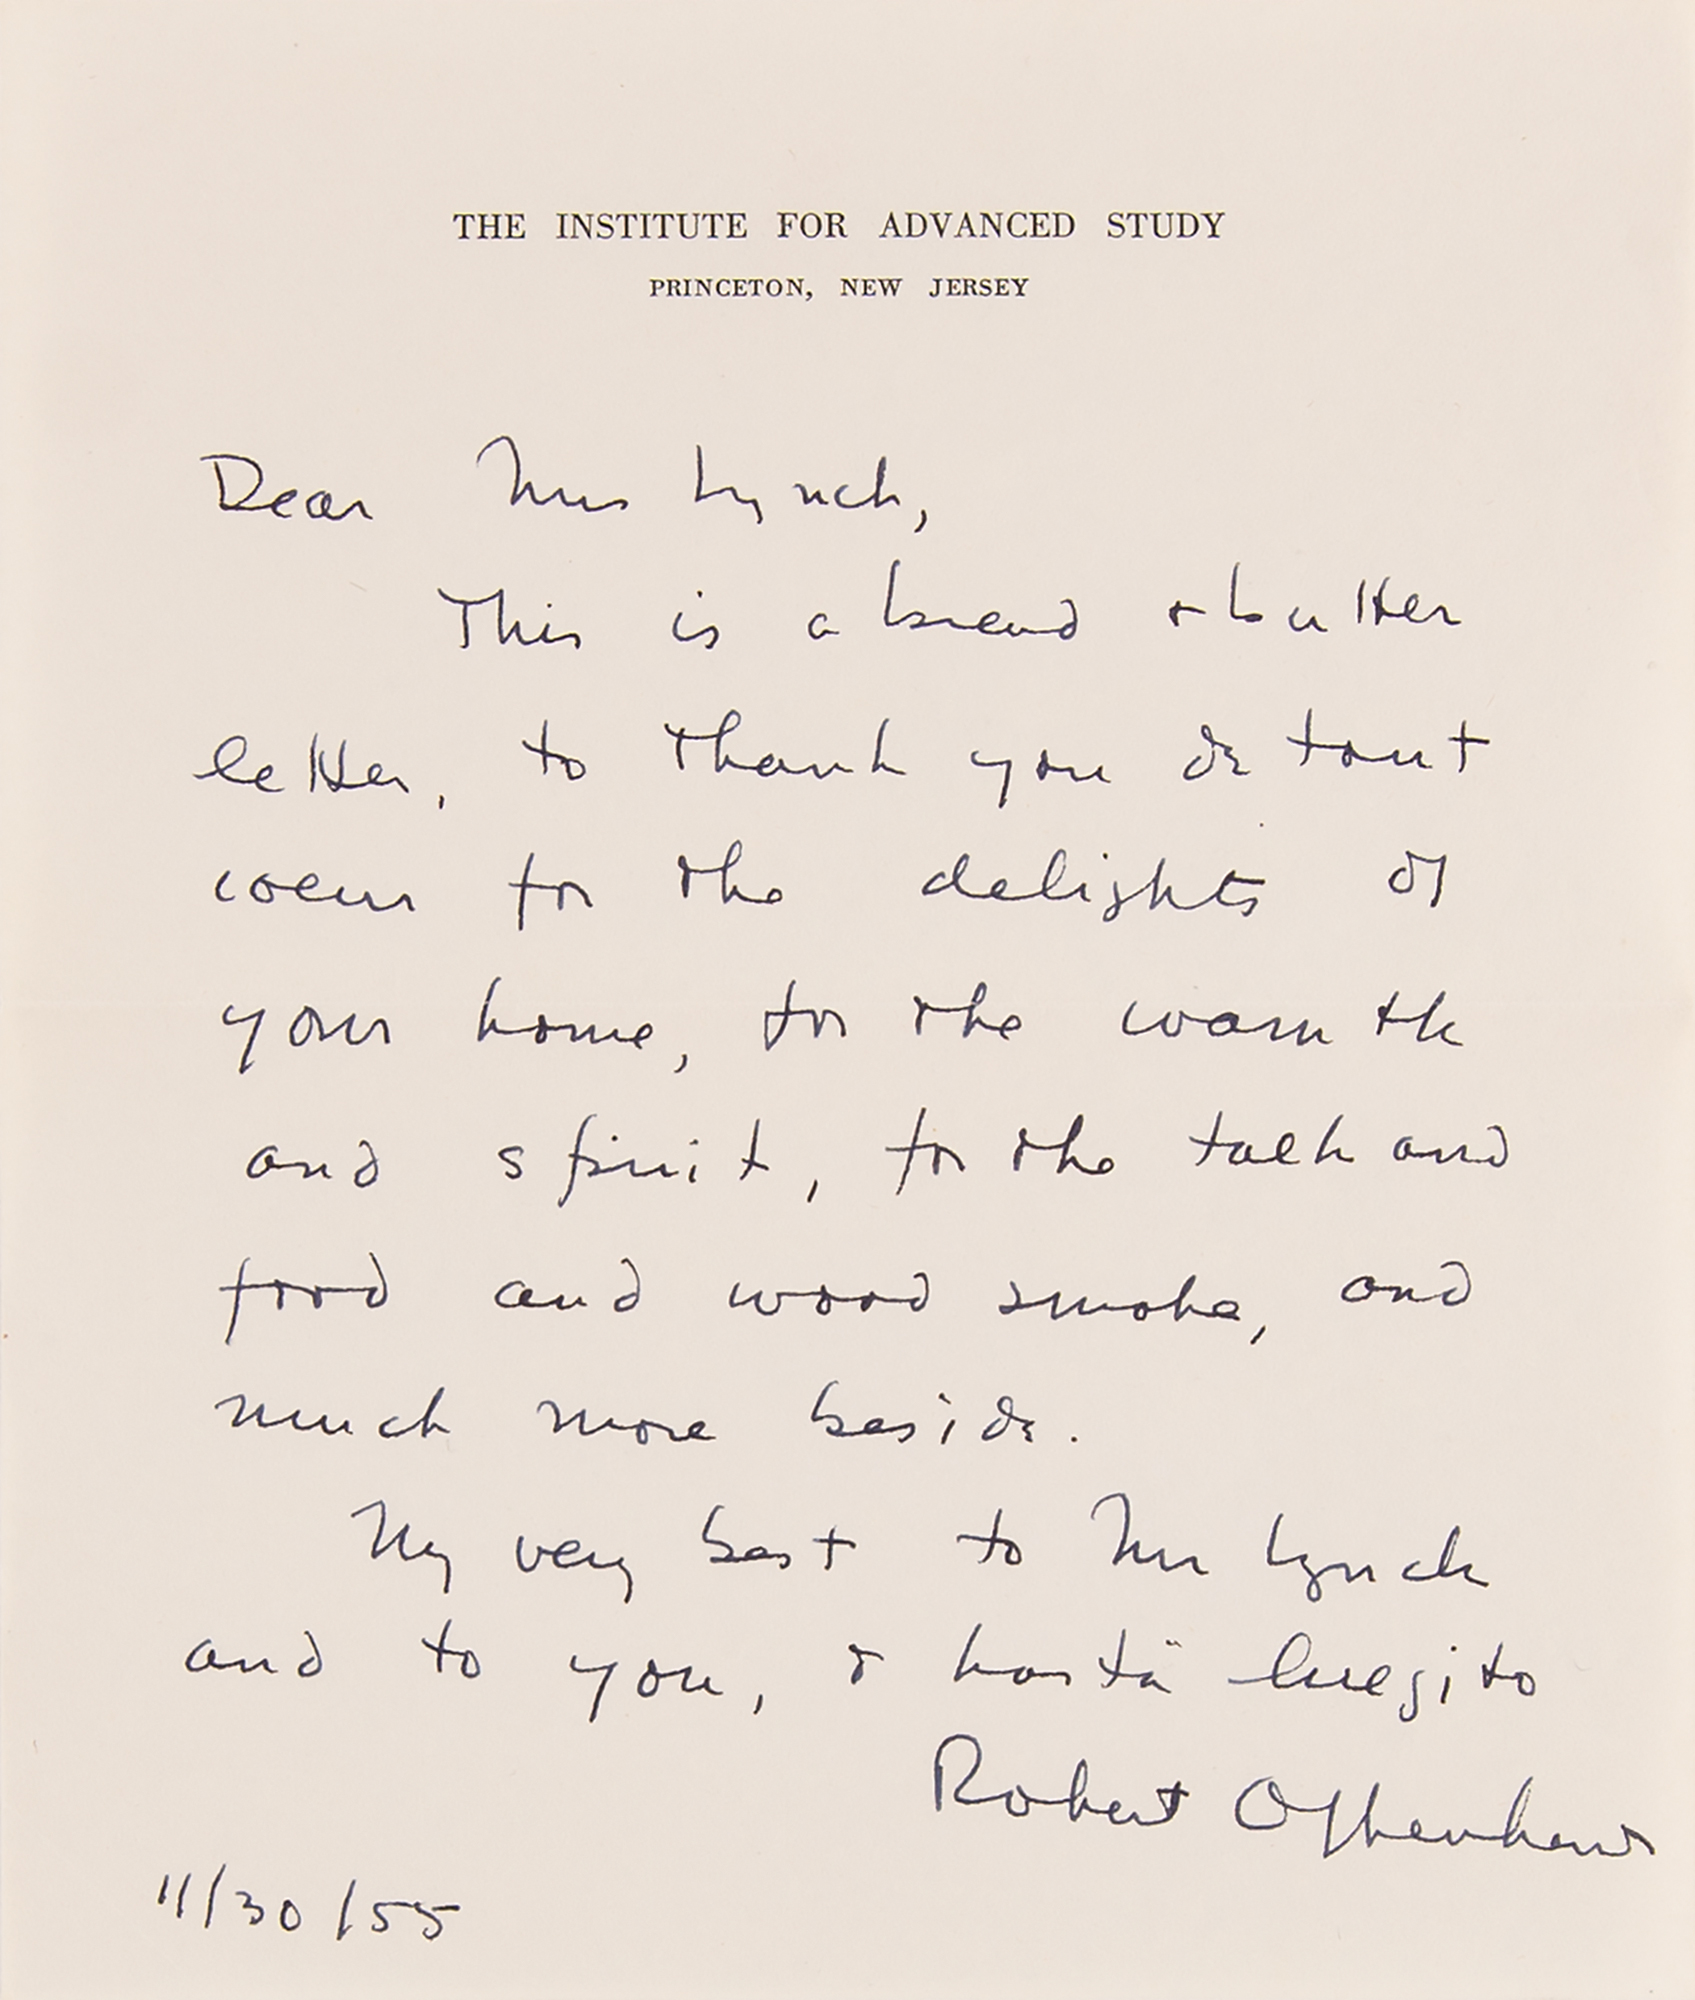 THE INSTITUTE FOR ADVANCED STUDY
PRINCETON, NEW JERSEY
Dear Mrs Lynch,
This is a bread + butter
letter, to thank you de tout
coeur for the delights of
your home, for the warmth
and spirit, for the talk and
food and wood smoke, and
much more beside.
My very best to Mr Lynch
and to you, & hasta luegito
Robert Oppenheimer
11/30/55